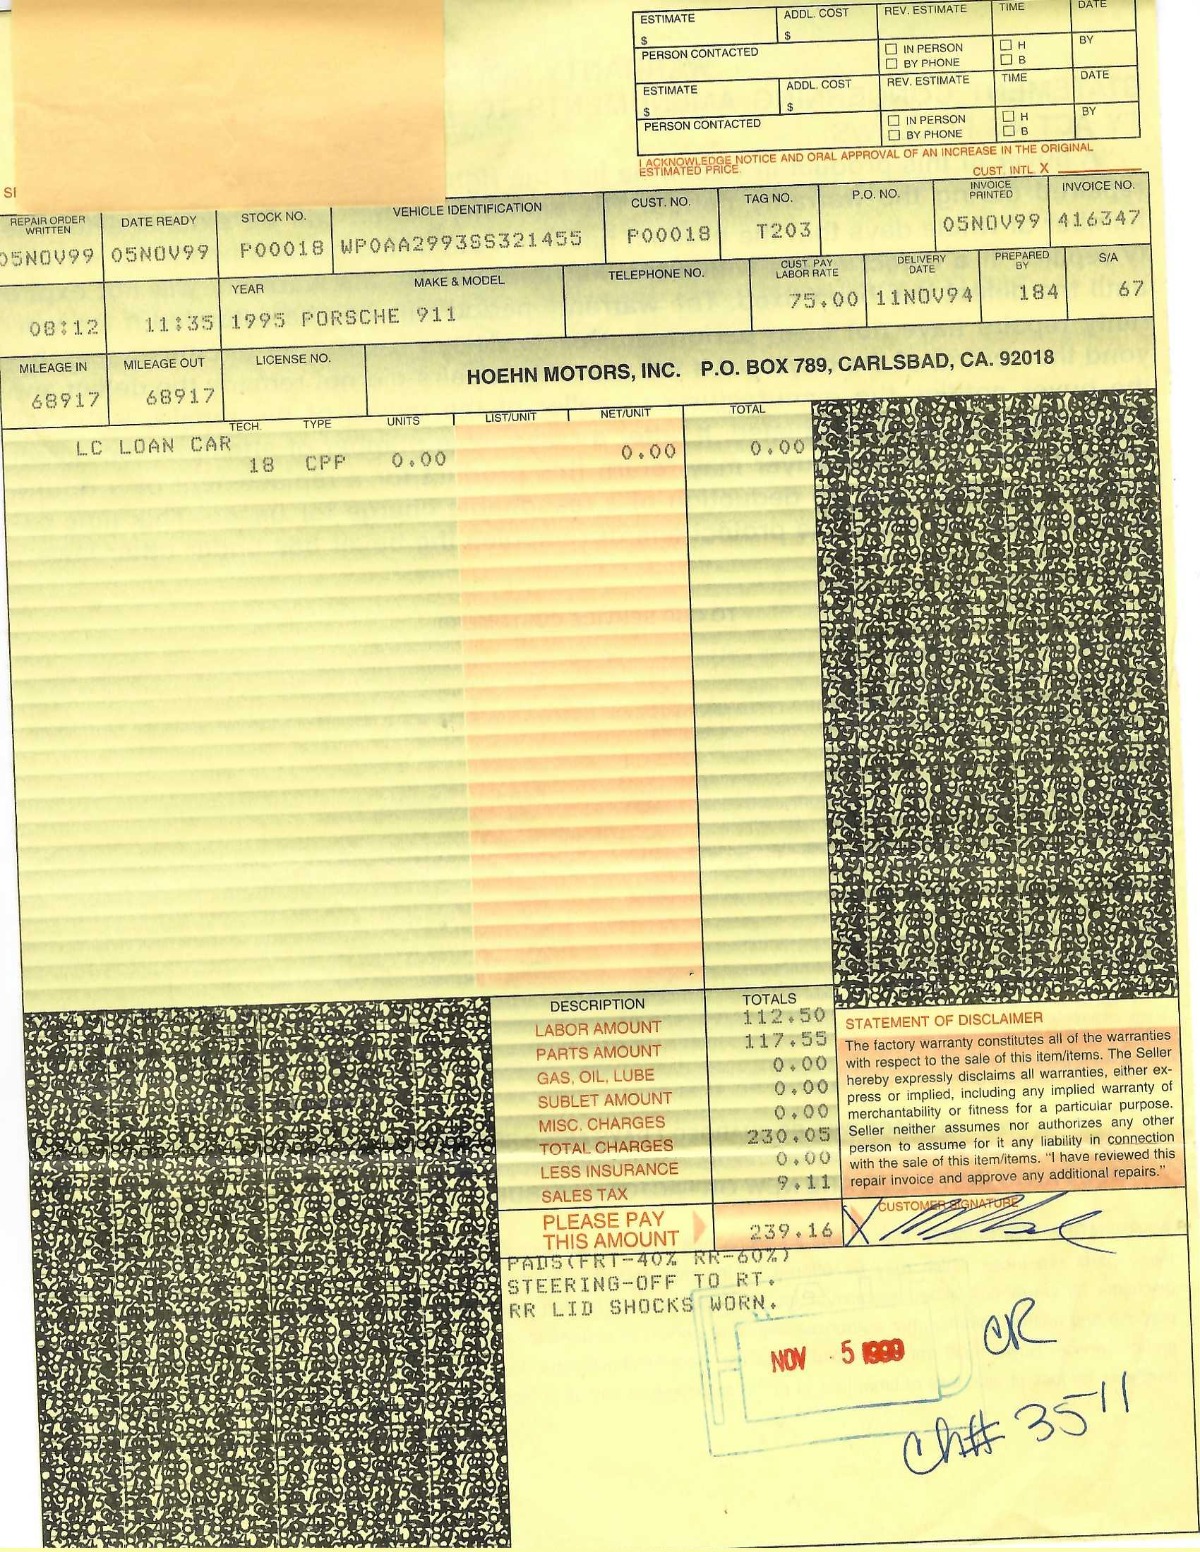 ESTIMATE ADDL. COST REV. ESTIMATE TIME DATE
$ $
PERSON CONTACTED ☐ IN PERSON ☐ H BY
☐ BY PHONE ☐ B
ESTIMATE ADDL. COST REV. ESTIMATE TIME DATE
$ $
PERSON CONTACTED ☐ IN PERSON ☐ H BY
☐ BY PHONE ☐ B
I ACKNOWLEDGE NOTICE AND ORAL APPROVAL OF AN INCREASE IN THE ORIGINAL
ESTIMATED PRICE. CUST. INTL. X
REPAIR ORDER WRITTEN DATE READY STOCK NO. VEHICLE IDENTIFICATION CUST. NO. TAG NO. P.O. NO. INVOICE PRINTED INVOICE NO.
05NOV99 05NOV99 P00018 WP0AA2993SS321455 P00018 T203 05NOV99 416347
YEAR MAKE & MODEL TELEPHONE NO. CUST. PAY LABOR RATE DELIVERY DATE PREPARED BY S/A
08:12 11:35 1995 PORSCHE 911 75.00 11NOV94 184 67
MILEAGE IN MILEAGE OUT LICENSE NO.
68917 68917 HOEHN MOTORS, INC. P.O. BOX 789, CARLSBAD, CA. 92018
TECH. TYPE UNITS LIST/UNIT NET/UNIT TOTAL
LC LOAN CAR
18 CPP 0.00 0.00 0.00
DESCRIPTION TOTALS
LABOR AMOUNT 112.50
PARTS AMOUNT 117.55
GAS, OIL, LUBE 0.00
SUBLET AMOUNT 0.00
MISC. CHARGES 0.00
TOTAL CHARGES 230.05
LESS INSURANCE 0.00
SALES TAX 9.11
PLEASE PAY
THIS AMOUNT 239.16
STATEMENT OF DISCLAIMER
The factory warranty constitutes all of the warranties
with respect to the sale of this item/items. The Seller
hereby expressly disclaims all warranties, either ex-
press or implied, including any implied warranty of
merchantability or fitness for a particular purpose.
Seller neither assumes nor authorizes any other
person to assume for it any liability in connection
with the sale of this item/items. "I have reviewed this
repair invoice and approve any additional repairs."
CUSTOMER SIGNATURE
X
PADS(FRT-40% RR-60%)
STEERING-OFF TO RT.
RR LID SHOCKS WORN.
NOV 5 1999
CR
Ch# 3511